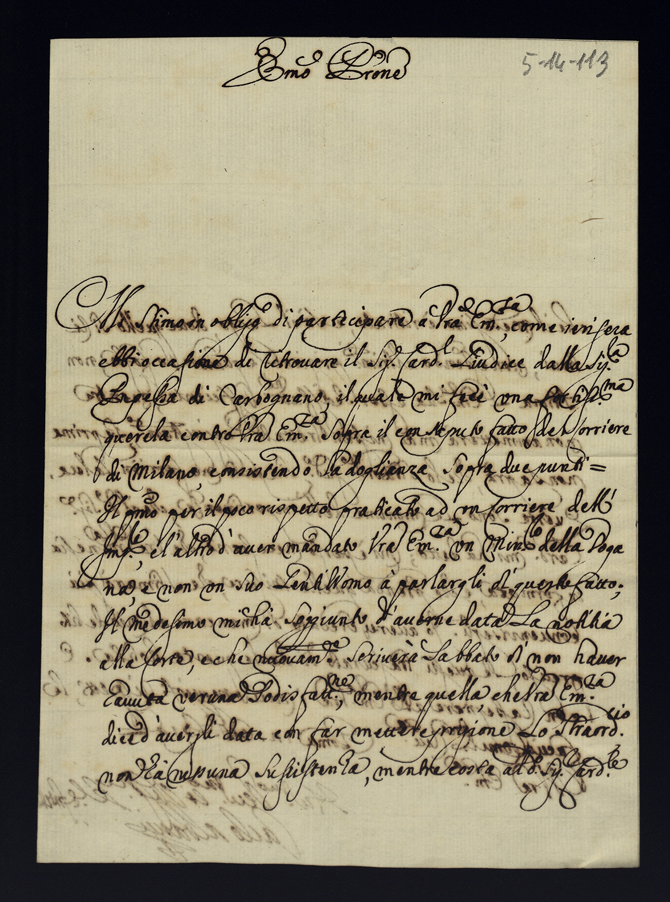 Emo Prone
5-14-113
Mi stimo in obligo di participare à Vra Em.za, come ieri sera
ebbi occasione di ritrouare il Sig.r Card.l Giudice dalla Sig.ra
Pnpessa di Carbognano, il quale mi fece una fortiss.ma
querela contro Vra Em.za sopra il consaputo fatto del Corriere
di Milano, consistendo la doglianza sopra due punti=
Il pmo per il poco rispetto praticato ad un Corriere dell'
Imp.re, el'altro d'aver mandato Vra Em.za un Min.ro della Doga
na, e non un suo Gentilhomo à parlargli di questo fatto;
Il medesimo mi hà soggiunto d'averne data la notitia
alla Corte, e che nuouam.te scriuerà Sabbato di non hauer
hauuta veruna sodisfatt.ne, mentre quella, che Vra Em.za
dice d'avergli data con far mettere prigione lo Straord.rio
non hà nissuna sussistenza, mentre costa al d.o Sig.r Card.le